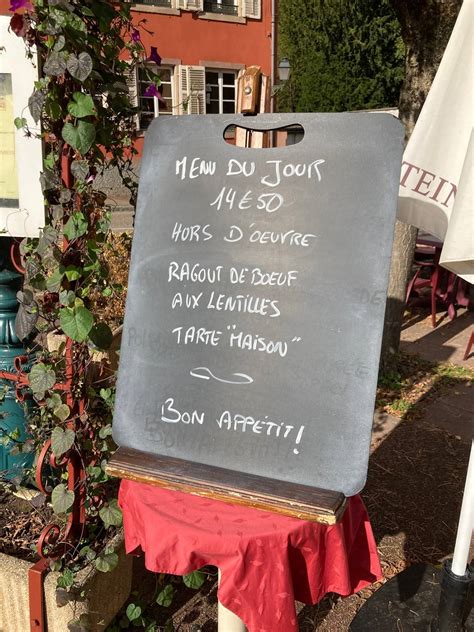 MENU DU JOUR
14€50
HORS D'OEUVRE
RAGOUT DE BOEUF
AUX LENTILLES
TARTE "MAISON"
BON APPÉTIT!
TEIN